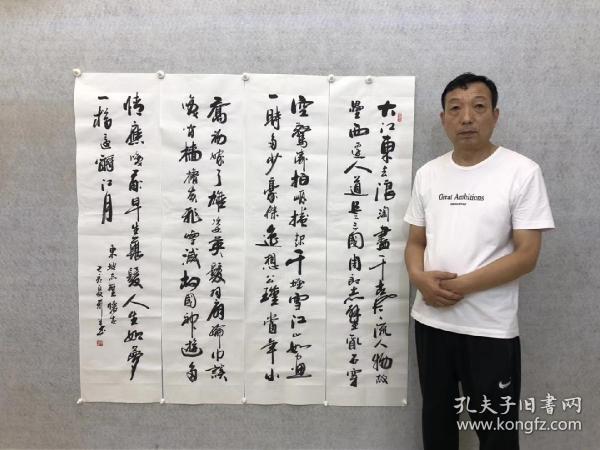 大江東去浪淘盡千古風流人物故
壘西邊人道是三國周郎赤壁亂石穿
空驚濤拍岸捲起千堆雪江山如畫
一時多少豪傑遥想公瑾當年小
喬初嫁了雄姿英發羽扇綸巾談
笑間檣櫓灰飛煙滅故國神遊多
情應笑我早生華髮人生如夢
一樽還酹江月
東坡赤壁懷古
Great Ambitions
孔夫子旧书网
www.kongfz.com